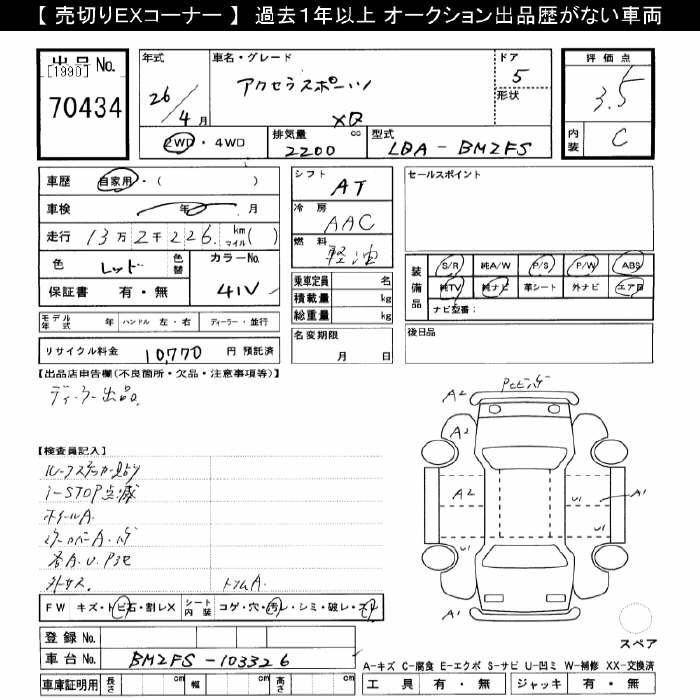 【 売切りEXコーナー 】 過去1年以上 オークション出品歴がない車両
出品 No.
[1990]
70434
年式
26/4月
車名・グレード
アクセラスポーツ
XD
ドア
5
形状
評価点
3.5
内装
C
2WD・4WD
排気量
2200 cc
型式
LDA-BM2FS
車歴 自家用・( )
車検 年 月
走行 13万2千226 km マイル( )
色 レッド 色替
カラーNo.
41V
保証書 有・無
シフト
AT
冷房
AAC
燃料
軽油
乗車定員 名
積載量 kg
総重量 kg
名変期限
月 日
セールスポイント
装備品
S/R 純A/W P/S P/W ABS
純TV 純ナビ 革シート 外ナビ エアB
ナビ型番:
後日品
モデル年式 年 ハンドル 左・右 ディーラー・並行
リサイクル料金 10,770 円 預託済
【出品店申告欄(不良箇所・欠品・注意事項等)】
ディーラー出品
【検査員記入】
i-STOP点滅
ホイールA
トムA
FW キズ・トビ石・割レX シート内装 コゲ・穴・汚レ・シミ・破レ・スレ
A2
A2
A2
U1
A1
U1
A1
スペア
登録 No.
車台 No. BM2FS-103326
車庫証明用 長さ cm 幅 cm 高さ cm
A-キズ C-腐食 E-エクボ S-サビ U-凹ミ W-補修 XX-交換済
工具 有・無 ジャッキ 有・無